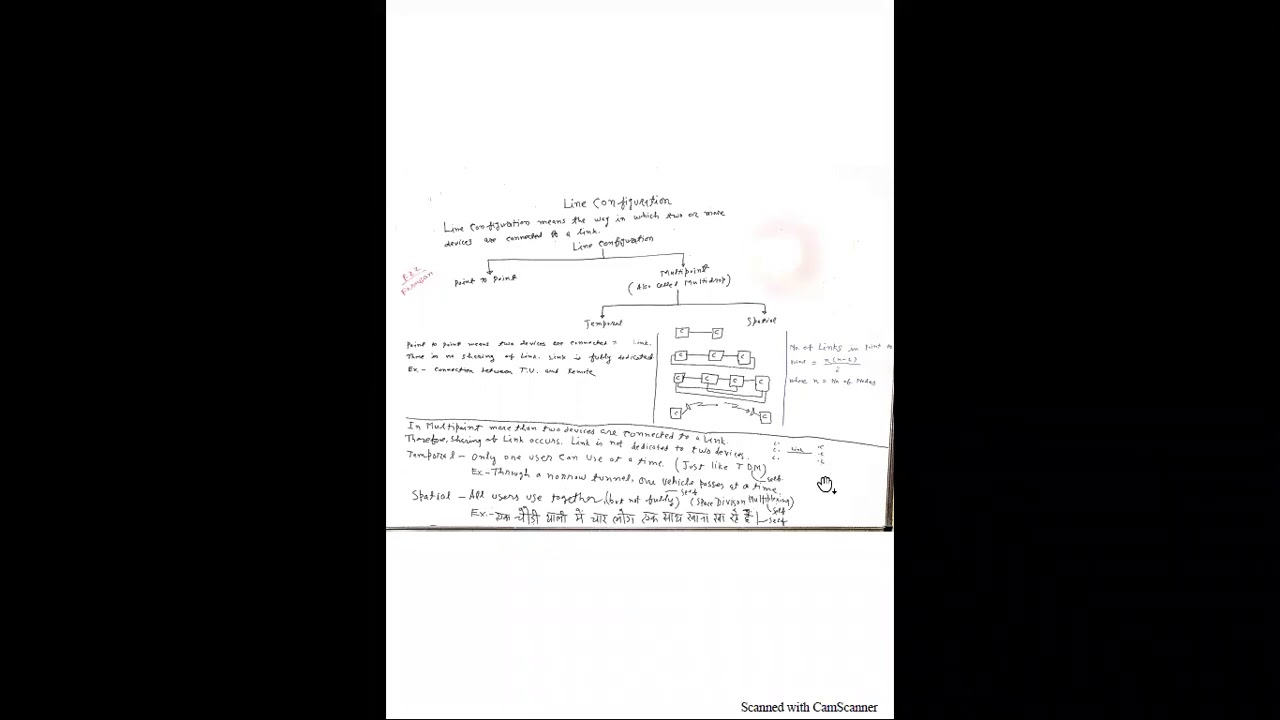 Line Configuration
Line Configuration means the way in which two or more
devices are connected to a link.
Line Configuration
Point to Point
Multipoint
(Also called Multidrop)
Temporal
Spatial
Point to point means two devices are connected = Link.
There is no sharing of Link. Link is fully dedicated
Ex - Connection between T.V. and Remote
C C
C C C
C C C C
C C
No of Links in Point to
Point = n(n-1)
2
where n = No of Nodes
In Multipoint more than two devices are connected to a Link.
Therefore, Sharing of Link occurs. Link is not dedicated to two devices.
Link
Temporal - Only one user can use at a time. (Just like TDM)
self
Ex - Through a narrow tunnel, one vehicle passes at a time
Spatial - All users use together (but not fully) (Space Divison Multiplexing)
self
self
Ex - एक चौडी थाली में चार लोग एक साथ खाना खा रहे हैं|
self
Scanned with CamScanner